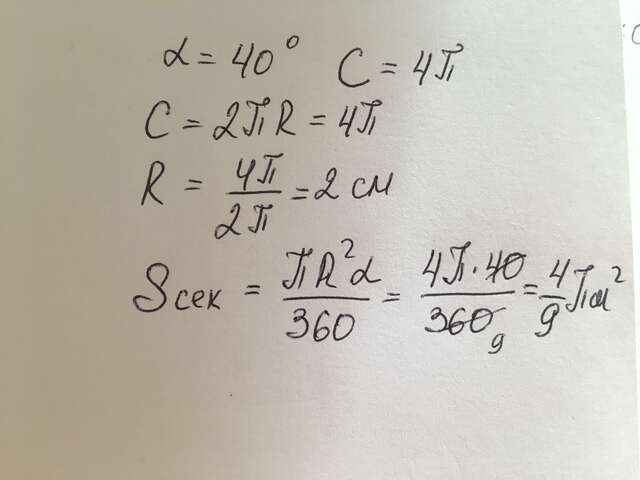 α = 40° C = 4π
C = 2πR = 4π
R = 4π/2π = 2 см
Sсек = πR²α/360 = 4π·40/360 9 = 4/9 π см²